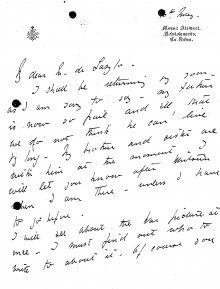 Mount Stewart,
Newtownards,
Co. Down.
My dear Mr. de Laszlo
I shall be returning by
as I am sorry to say my father
is now so frail and ill that
we do not think he can live
My mother and sister are
with him at the moment. I
will let you know after
when I am there unless I have
to go before.
I will see about the picture at
once. I must find out who to
write to about it. Of course